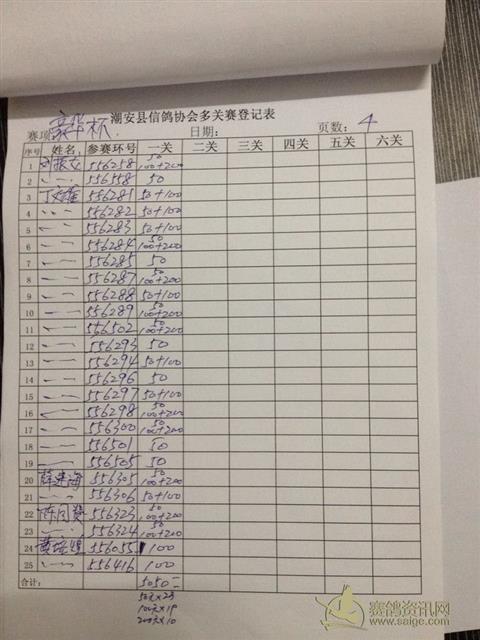 潮安县信鸽协会多关赛登记表
赛项 豪华杯 日期: 页数: 4
序号 姓名 参赛环号 一关 二关 三关 四关 五关 六关
1 刘振文 556258 50 100+200
2 〃 556558 50
3 丁文雄 556281 50+100
4 〃 556282 50+100
5 〃 556283 50+100
6 〃 556284 50 100+200
7 〃 556285 50
8 〃 556287 50 100+200
9 〃 556288 50+100
10 〃 556289 50 100+200
11 〃 556502 50 100+200
12 〃 556293 50
13 〃 556294 50+100
14 〃 556296 50
15 〃 556297 50+100
16 〃 556298 50 100+200
17 〃 556300 50 100+200
18 〃 556501 50
19 〃 556505 50
20 薛进海 556305 50 100+200
21 〃 556306 50+100
22 陈同贤 556323 50 100+200
23 〃 556324 50 100+200
24 556055 100
25 〃 556416 100
合计: 5050
50元×23
100元×19
200元×10
赛鸽资讯网
www.saige.com